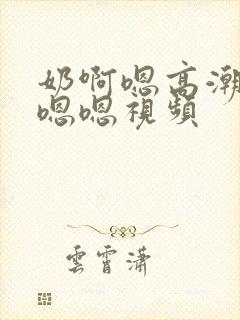 奶啊嗯高潮
嗯嗯視頻
雲霄瀟